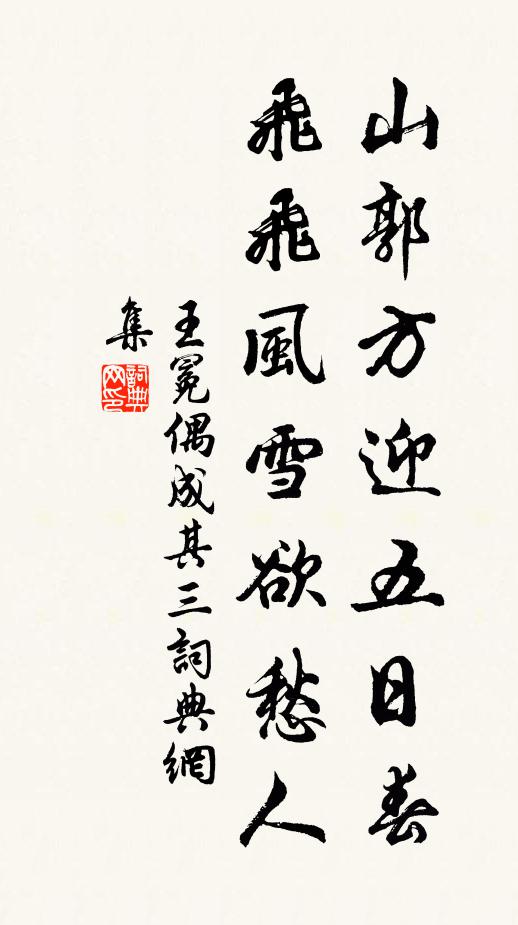 山郭方迎五日春
飛飛風雪欲愁人
王冕偶成其三詞典網
集
詞典
网印